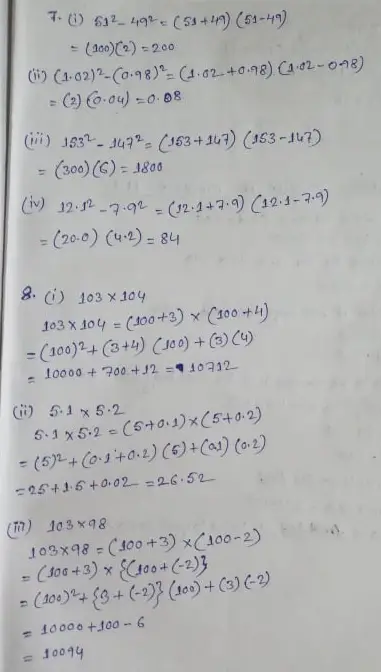 7. (i) 51² - 49² = (51+49) (51-49)
= (100)(2) = 200
(ii) (1.02)² - (0.98)² = (1.02 + 0.98) (1.02 - 0.98)
= (2) (0.04) = 0.08
(iii) 153² - 147² = (153+147) (153-147)
= (300)(6) = 1800
(iv) 12.1² - 7.9² = (12.1+7.9) (12.1-7.9)
= (20.0) (4.2) = 84
8. (i) 103 × 104
103 × 104 = (100+3) × (100+4)
= (100)² + (3+4) (100) + (3) (4)
= 10000 + 700 + 12 = 10712
(ii) 5.1 × 5.2
5.1 × 5.2 = (5+0.1) × (5+0.2)
= (5)² + (0.1+0.2) (5) + (0.1) (0.2)
= 25 + 1.5 + 0.02 = 26.52
(iii) 103×98
103×98 = (100+3) × (100-2)
= (100+3) × {(100+(-2)}
= (100)² + {3+(-2)} (100) + (3) (-2)
= 10000 + 100 - 6
= 10094